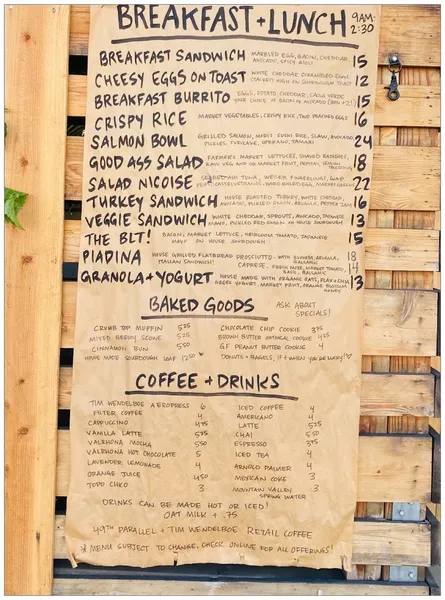 BREAKFAST + LUNCH 9AM-2:30
BREAKFAST SANDWICH MARBLED EGG, BACON, CHEDDAR, AVOCADO, SPICY AIOLI 15
CHEESY EGGS ON TOAST WHITE CHEDDAR SCRAMBLED EGGS, CULTURED HIGH ON SOURDOUGH TOAST 12
BREAKFAST BURRITO EGGS, POTATO, CHEDDAR, SALSA VERDE YOUR CHOICE OF BACON OR AVOCADO 15
CRISPY RICE MARKET VEGETABLES, CRISPY RICE, TWO POACHED EGGS 16
SALMON BOWL GRILLED SALMON, SUSHI RICE, SLAW, AVOCADO, PICKLES, FURIKAKE, TAMARI 24
GOOD ASS SALAD FARMER'S MARKET LETTUCES, SHAVED RADISHES, RAW VEG AND OR MARKET FRUIT, PEPITAS 18
SALAD NICOISE TUNA, WEISER FINGERLINGS, CASTELVETRANOS, HARD BOILED EGG 22
TURKEY SANDWICH HOUSE ROASTED TURKEY, WHITE CHEDDAR, AVOCADO, PICKLED ONION, ARUGULA, PEPPER JAM 16
VEGGIE SANDWICH WHITE CHEDDAR, SPROUTS, AVOCADO, JAPANESE MAYO, PICKLED RED ONION ON HOUSE SOURDOUGH 13
THE BLT! BACON, MARKET LETTUCE, HEIRLOOM TOMATO, JAPANESE MAYO ON HOUSE SOURDOUGH 15
PIADINA HOUSE GRILLED FLATBREAD ITALIAN SANDWICH! PROSCIUTTO - WITH BURRATA, ARULULA, BALSAMIC 18
CAPRESE - FRESH MOZZ, MARKET TOMATO, BASIL, BALSAMIC 14
GRANOLA + YOGURT HOUSE MADE WITH ORGANIC OATS, FLAX + CHIA GREEK YOGURT, MARKET FRUIT, ORANGE BLOSSOM HONEY 13
BAKED GOODS ASK ABOUT SPECIALS!
CRUMB TOP MUFFIN 5.25
MIXED BERRY SCONE 5.25
CINNAMON BUN 5.50
HOUSE MADE SOURDOUGH LOAF 12.50 ♥
CHOCOLATE CHIP COOKIE 3.75
BROWN BUTTER OATMEAL COOKIE 4.25
GF PEANUT BUTTER COOKIE 4
DONUTS + BAGELS, IF + WHEN YOU'RE LUCKY! ♡
COFFEE + DRINKS
TIM WENDELBOE AEROPRESS 6
FILTER COFFEE 4
CAPPUCCINO 4.75
VANILLA LATTE 5.75
VALRHONA MOCHA 5.50
VALRHONA HOT CHOCOLATE 5
LAVENDER LEMONADE 4
ORANGE JUICE 4.50
TOPO CHICO 3
ICED COFFEE 4
AMERICANO 4
LATTE 5.25
CHAI 5.50
ESPRESSO 3.75
ICED TEA 4
ARNOLD PALMER 4
MEXICAN COKE 3
MOUNTAIN VALLEY SPRING WATER 3
DRINKS CAN BE MADE HOT OR ICED!
OAT MILK + .75
49TH PARALLEL + TIM WENDELBOE RETAIL COFFEE
* MENU SUBJECT TO CHANGE, CHECK ONLINE FOR ALL OFFERINGS!